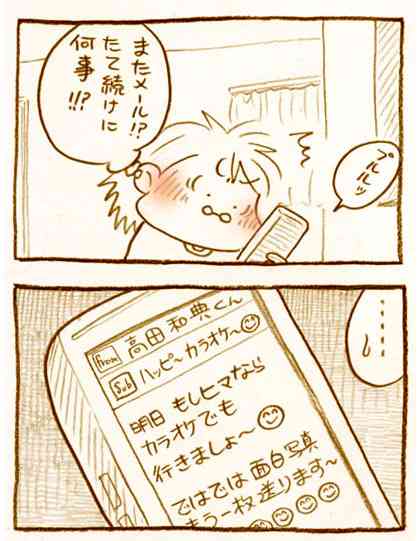 またメール!?
たて続けに
何事!!?
プルルッ
……
from 高田和典くん
Sub ハッピ〜カラオケ〜
明日 もしヒマなら
カラオケでも
行きましょ〜
ではでは 面白写真
もう一枚送ります〜